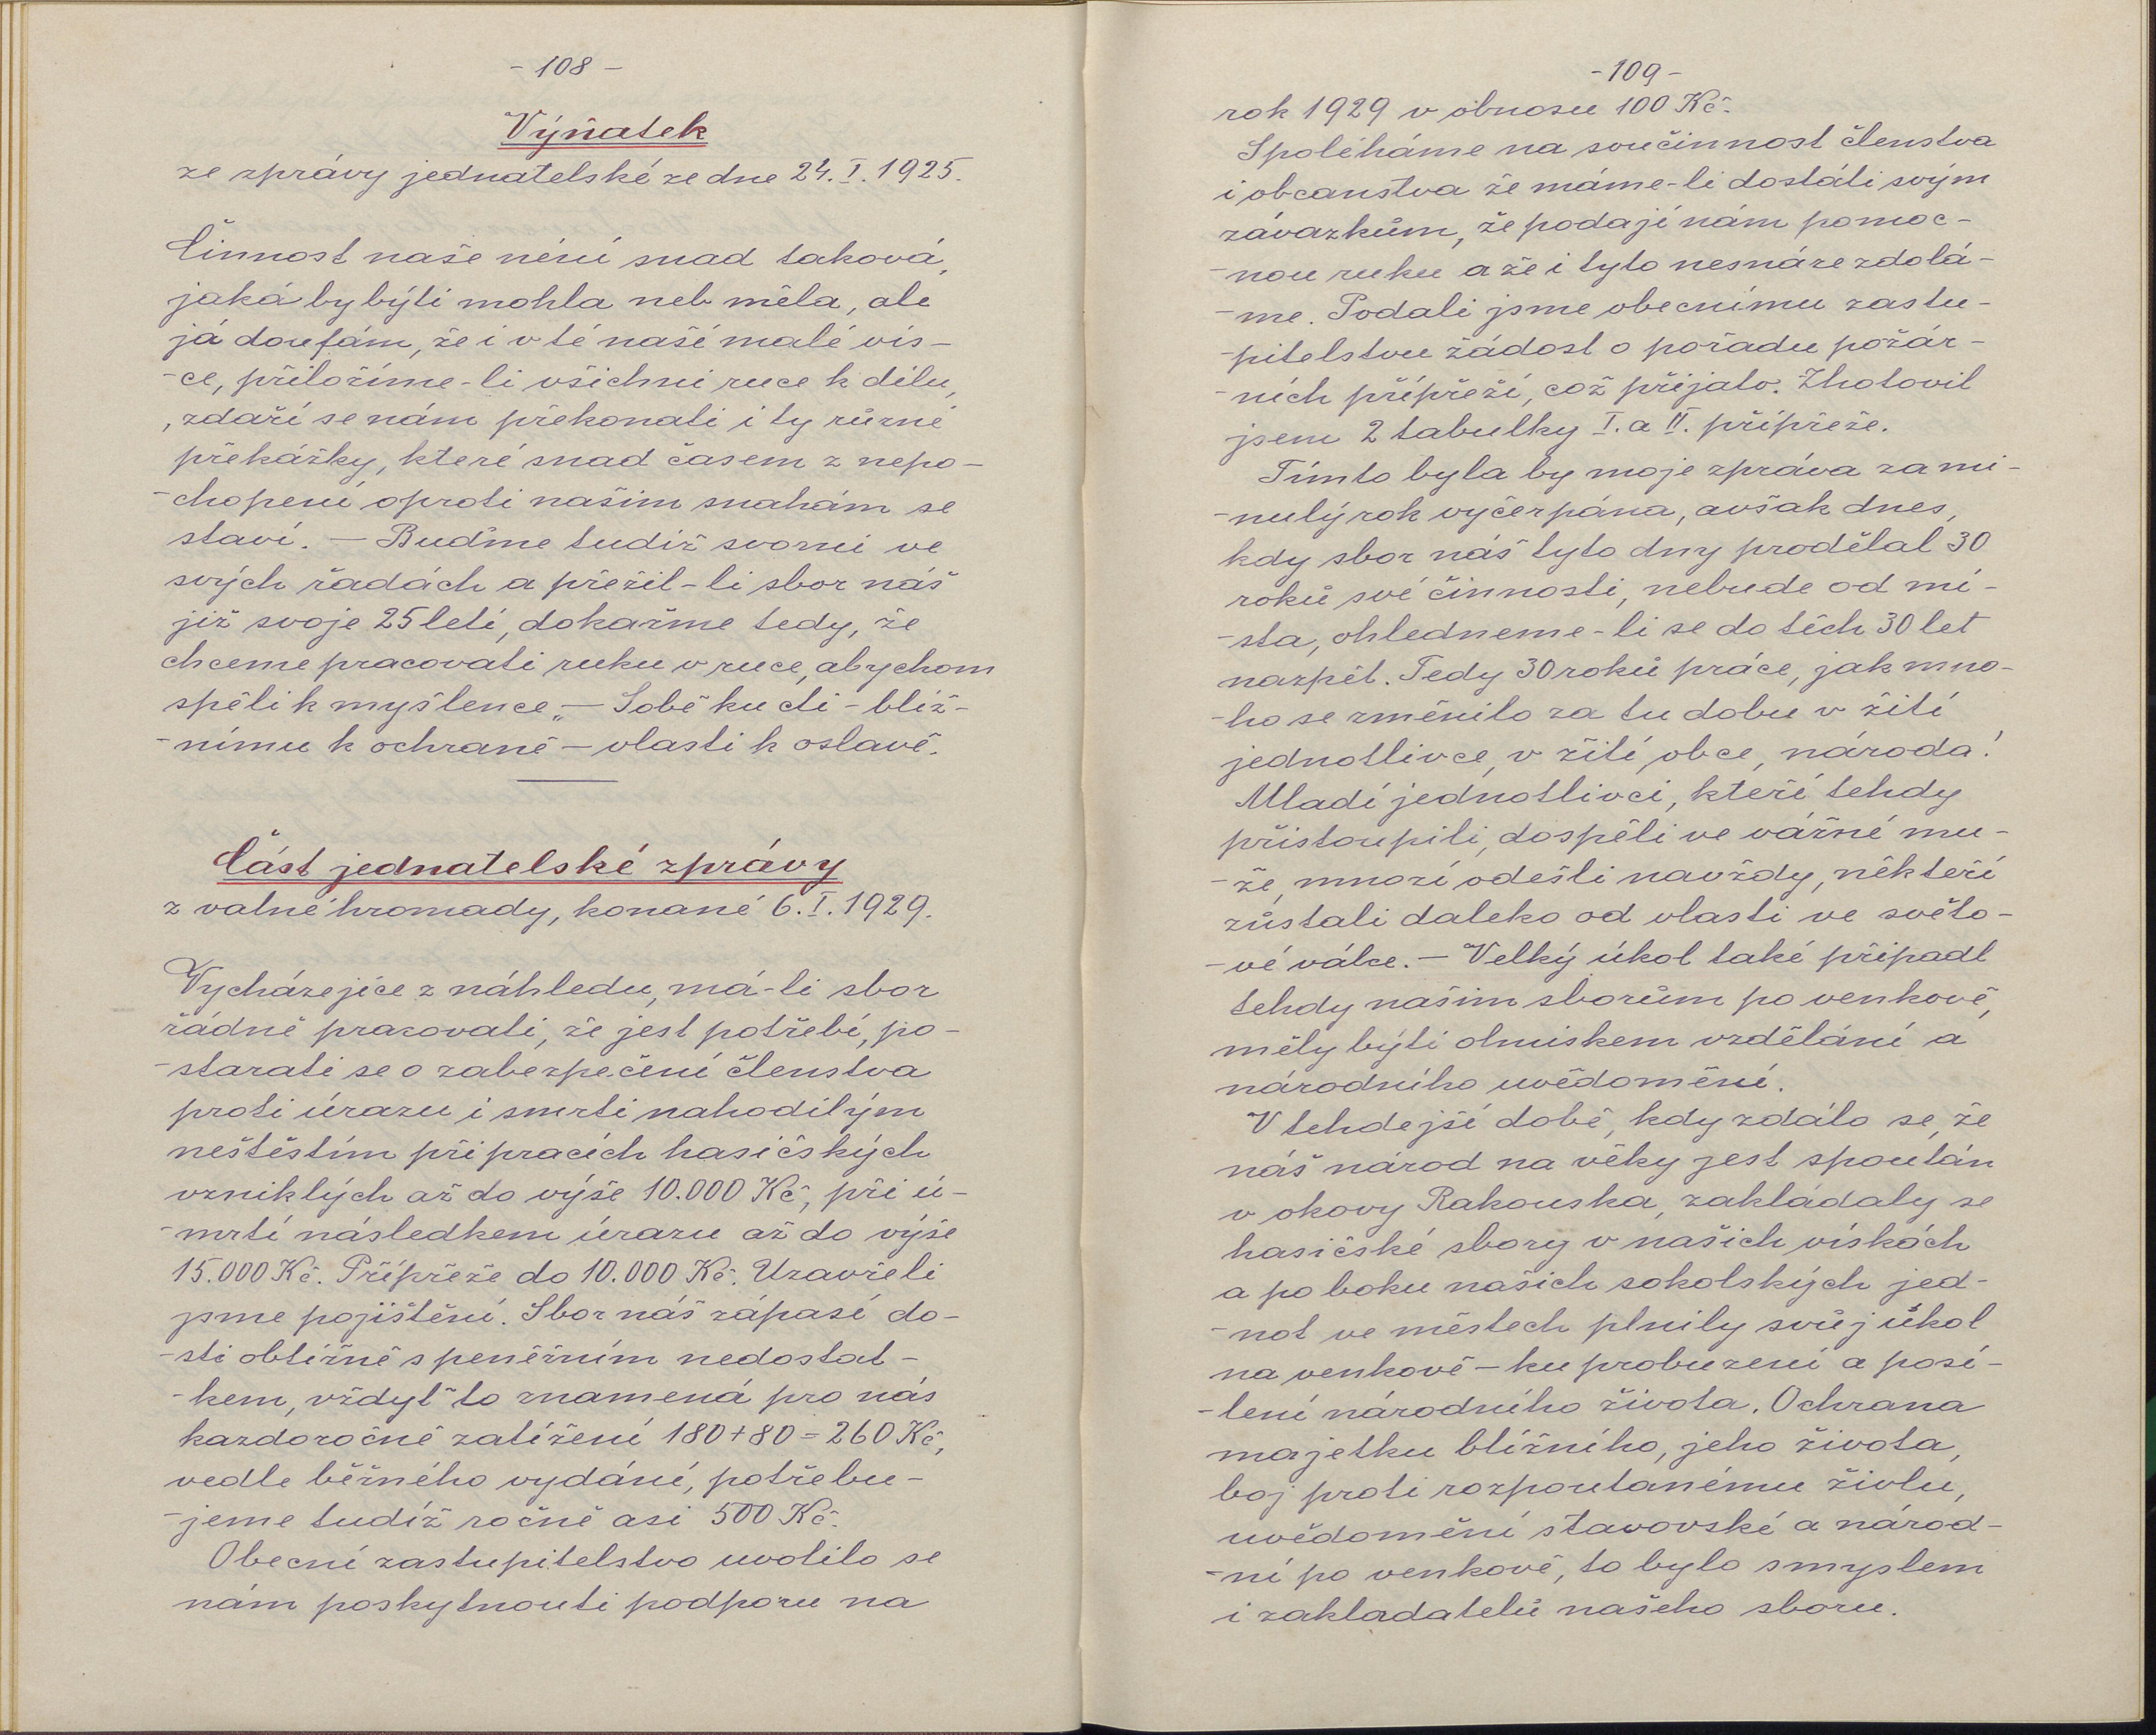 - 108 -
Výňatek
ze zprávy jednatelské ze dne 24. I. 1925.
Činnost naše není snad taková,
jaká by býti mohla neb měla, ale
já doufám, že i v té naší malé vís-
-ce, přiložíme-li všichni ruce k dílu,
, zdaří se nám překonati i ty různé
překážky, které snad časem z nepo-
-chopení oproti našim snahám se
staví. — Buďme tudíž svorni ve
svých řadách a přežil-li sbor náš
již svoje 25 letí, dokažme tedy, že
chceme pracovati ruku v ruce, abychom
spěli k myšlence „— Sobě ku cti - bliž-
-nímu k ochraně — vlasti k oslavě.
Část jednatelské zprávy
z valné hromady, konané 6. I. 1929.
Vycházejíce z náhledu, má-li sbor
řádně pracovati, že jest potřebí, po-
-starati se o zabezpečení členstva
proti úrazu i smrti nahodilým
neštěstím při pracích hasičských
vzniklých až do výše 10.000 Kč, při ú-
-mrtí následkem úrazu až do výše
15.000 Kč. Přípřeže do 10.000 Kč. Uzavřeli
jsme pojištění. Sbor náš zápasí do-
-sti obtížně s peněžním nedostat-
-kem, vždyť to znamená pro nás
kazdoročně zatížení 180 + 80 = 260 Kč,
vedle běžného vydání, potřebu-
-jeme tudíž ročně asi 500 Kč.
Obecní zastupitelstvo uvolilo se
nám poskytnouti podporu na
- 109 -
rok 1929 v obnosu 100 Kč.
Spoléháme na součinnost členstva
i obcanstva že máme-li dostáti svým
závazkům, že podají nám pomoc-
-nou ruku a že i tyto nesnáze zdolá-
-me. Podali jsme obecnímu zastu-
-pitelstvu žádost o pořadu požár-
-ních přípřeží, což přijato. Zhotovil
jsem 2 tabulky I. a II. přípřeže.
Tímto byla by moje zpráva za mi-
-nulý rok vyčerpána, avšak dnes,
kdy sbor náš tyto dny prodělal 30
roků své činnosti, nebude od mí-
-sta, ohledneme-li se do těch 30 let
nazpět. Tedy 30 roků práce, jak mno-
-ho se změnilo za tu dobu v žití
jednotlivce, v žití obce, národa!
Mladí jednotlivci, kteří tehdy
přistoupili, dospěli ve vážné mu-
-že, mnozí odešli navždy, někteří
zůstali daleko od vlasti ve světo-
-vé válce. — Velký úkol také připadl
tehdy našim sborům po venkově,
měly býti ohniskem vzdělání a
národního uvědomění.
V tehdejší době, kdy zdálo se, že
náš národ na věky jest spoután
v okovy Rakouska, zakládaly se
hasičské sbory v našich vískách
a po boku našich sokolských jed-
-not ve městech plnily svůj úkol
na venkově — ku probuzení a posí-
-lení národního života. Ochrana
majetku bližního, jeho života,
boj proti rozpoutanému živlu,
uvědomění stavovské a národ-
-ní po venkově, to bylo smyslem
i zakladatelů našeho sboru.